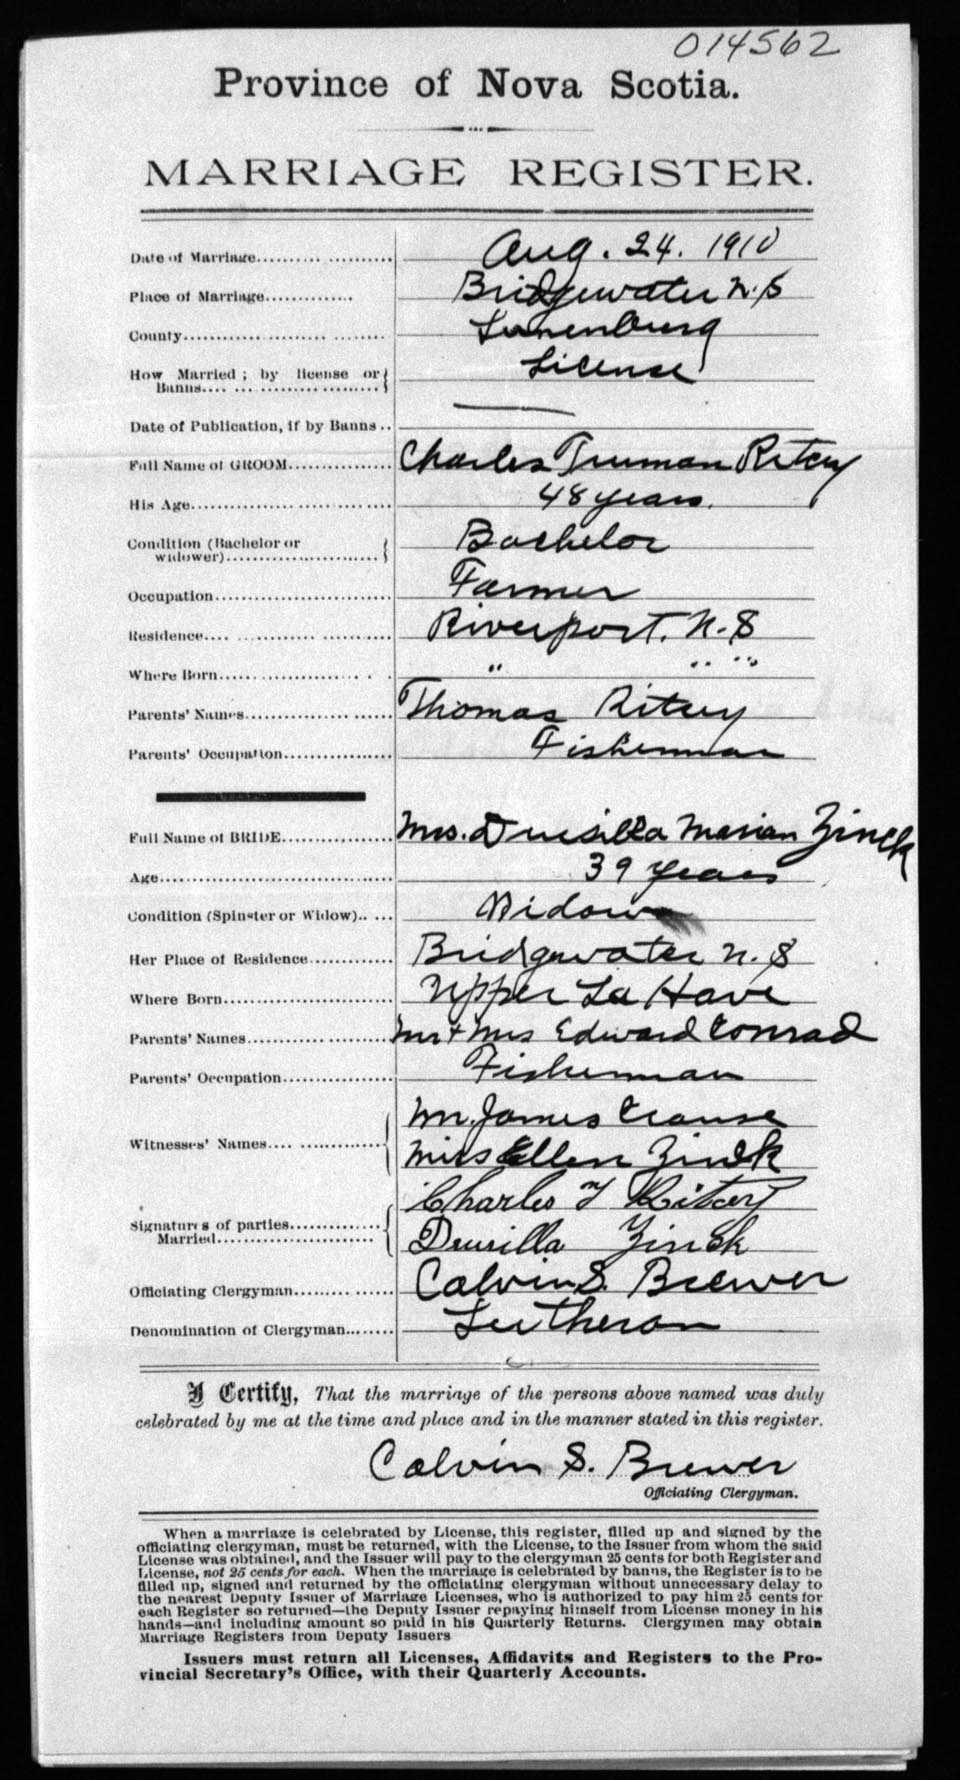 014562
Province of Nova Scotia.
MARRIAGE REGISTER.
Date of Marriage.................... Aug. 24. 1910
Place of Marriage............. Bridgewater N.S
County.............................. Lunenburg
How Married ; by license or
Banns.............................. License
Date of Publication, if by Banns .. —
Full Name of GROOM............... Charles Truman Ritcey
His Age............................. 48 years.
Condition (Bachelor or
widower)...................... Bachelor
Occupation......................... Farmer
Residence......................... Riverport. N.S
Where Born...................... " " "
Parents' Names.................. Thomas Ritcey
Parents' Occupation............... Fisherman
Full Name of BRIDE.............. Mrs. Drusilla Marian Zinck
Age.................................. 39 years
Condition (Spinster or Widow)..... Widow
Her Place of Residence........... Bridgewater N.S
Where Born........................ Upper La Have
Parents' Names.................. Mr + Mrs Edward Conrad
Parents' Occupation............... Fisherman
Witnesses' Names................ Mr. James Crouse
Miss Ellen Zinck
Signatures of parties.............. Charles T Ritcey
Married....................... Drusilla Zinck
Officiating Clergyman............. Calvin S. Brewer
Denomination of Clergyman....... Lutheran
I Certify, That the marriage of the persons above named was duly
celebrated by me at the time and place and in the manner stated in this register.
Calvin S. Brewer
Officiating Clergyman.
When a marriage is celebrated by License, this register, filled up and signed by the
officiating clergyman, must be returned, with the License, to the Issuer from whom the said
License was obtained, and the Issuer will pay to the clergyman 25 cents for both Register and
License, not 25 cents for each. When the marriage is celebrated by banns, the Register is to be
filled up, signed and returned by the officiating clergyman without unnecessary delay to
the nearest Deputy Issuer of Marriage Licenses, who is authorized to pay him 25 cents for
each Register so returned—the Deputy Issuer repaying himself from License money in his
hands—and including amount so paid in his Quarterly Returns. Clergymen may obtain
Marriage Registers from Deputy Issuers
Issuers must return all Licenses, Affidavits and Registers to the Pro-
vincial Secretary's Office, with their Quarterly Accounts.